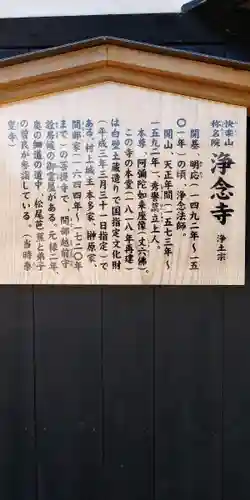 快楽山
稱名院
浄念寺
浄土宗
開基、明応(一四九二年〜一五
〇一年)の頃、浄念法師。
開山、天正年間(一五七三年〜
一五九二年)、秀誉
本尊、阿弥陀如来座像(丈六佛)。
この寺の本堂(一八一八年再建)
は白壁土蔵造りで国指定文化財
(平成三年三月三十一日指定)で
ある。村上城主 本多家、榊原家、
間部家(一六四四年〜一七二〇年
まで)の菩提寺で、間部越前守
詮房候の御霊屋がある。元禄二年、
奥の細道の道中、松尾芭蕉と弟子
の曽良が参詣している。(当時泰
叟寺)